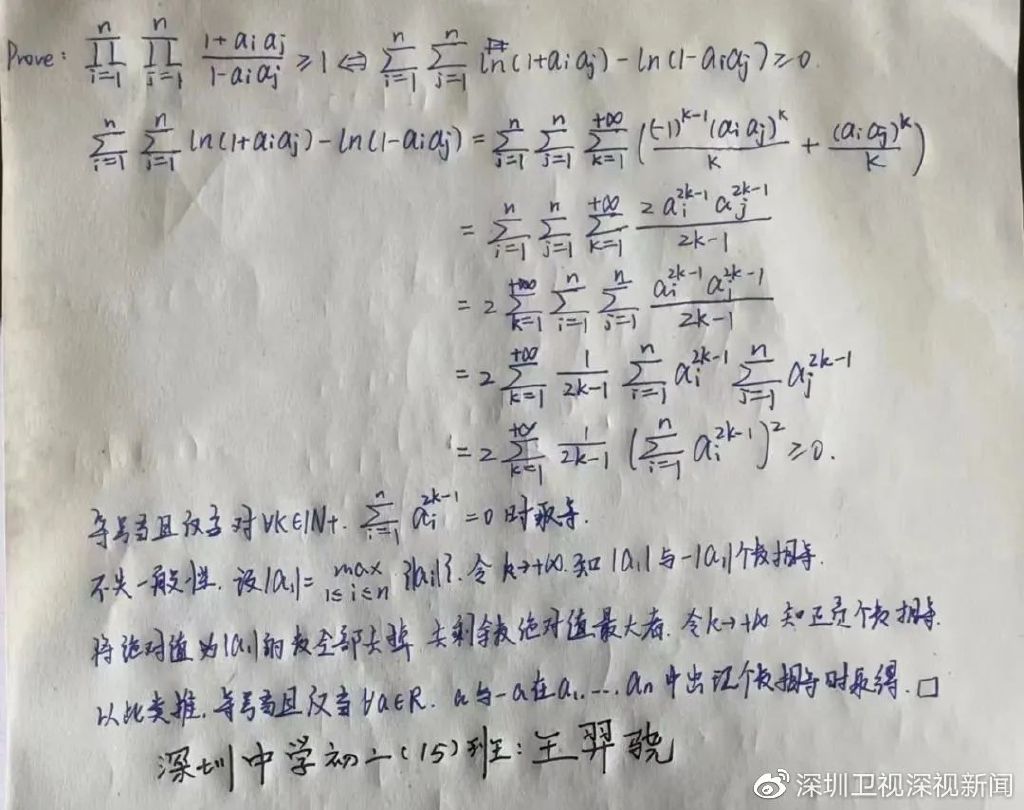 Prove: ∏_{i=1}^{n} ∏_{j=1}^{n} (1+a_i a_j)/(1-a_i a_j) ≥ 1 ⇔ ∑_{i=1}^{n} ∑_{j=1}^{n} ln(1+a_i a_j) - ln(1-a_i a_j) ≥ 0.
∑_{i=1}^{n} ∑_{j=1}^{n} ln(1+a_i a_j) - ln(1-a_i a_j) = ∑_{i=1}^{n} ∑_{j=1}^{n} ∑_{k=1}^{+∞} ((-1)^{k-1}(a_i a_j)^k/k + (a_i a_j)^k/k)
= ∑_{i=1}^{n} ∑_{j=1}^{n} ∑_{k=1}^{+∞} 2a_i^{2k-1} a_j^{2k-1}/(2k-1)
= 2∑_{k=1}^{+∞} ∑_{i=1}^{n} ∑_{j=1}^{n} a_i^{2k-1} a_j^{2k-1}/(2k-1)
= 2∑_{k=1}^{+∞} 1/(2k-1) ∑_{i=1}^{n} a_i^{2k-1} ∑_{j=1}^{n} a_j^{2k-1}
= 2∑_{k=1}^{+∞} 1/(2k-1) (∑_{i=1}^{n} a_i^{2k-1})^2 ≥ 0.
等号当且仅当对∀k∈N+. ∑_{i=1}^{n} a_i^{2k-1} = 0 时取等.
不失一般性. 设|a_1| = max_{1≤i≤n} {|a_i|}. 令 k→+∞. 知 |a_1| 与 -|a_1| 个数相等.
将绝对值为|a_1|的数全部去掉, 去剩余数绝对值最大者. 令k→+∞ 知正负个数相等.
以此类推. 等号当且仅当∀a∈R. a与-a在a_1,…,a_n中出现个数相等时取得. □
深圳中学初二(15)班: 王羿骁
深圳卫视深视新闻